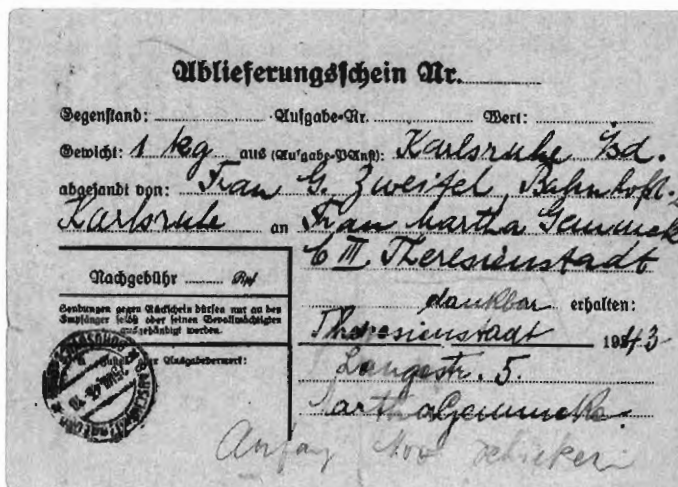 Ablieferungsschein Nr.
Gegenstand: Aufgabe-Nr. Wert:
Gewicht: 1 kg aus (Aufgabe-PAnst): Karlsruhe Bd.
abgesandt von: Frau G. Zweifel, Bahnhofst.
Karlsruhe an Frau Martha Gemmeke
C III Theresienstadt
Nachgebühr Rpf
dankbar erhalten:
Sendungen gegen Rückschein dürfen nur an den
Empfänger selbst oder seinen Bevollmächtigten
ausgehändigt werden.
Theresienstadt 1943
der Ausgabevermerk:
Langestr. 5.
Martha Gemmeke.
Anfang Nov schicken